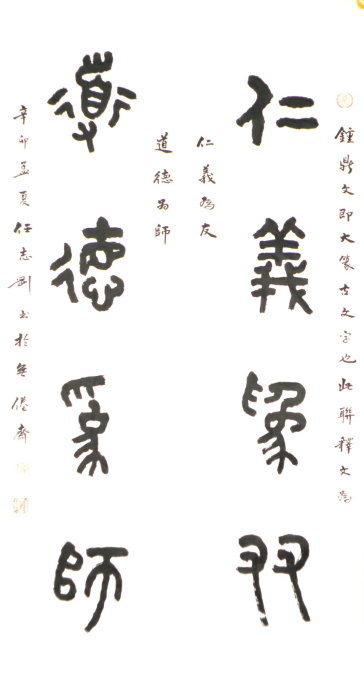 鍾鼎文即大篆古文字也此聯釋文為
仁義為友
仁義為友
道德為師
道德為師
辛卯孟夏任志剛書於無倦齋